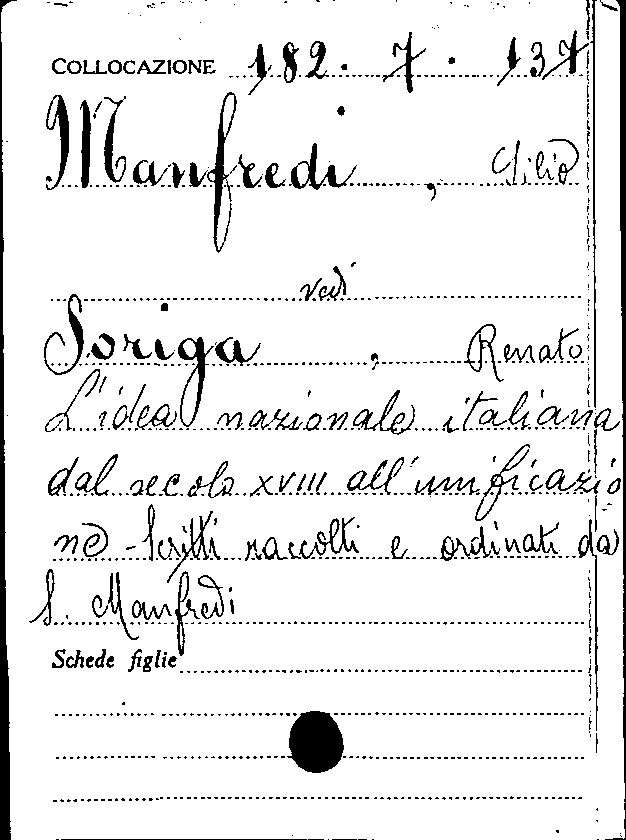 COLLOCAZIONE 182. 7. 137
Manfredi, Silio
vedi
Soriga, Renato
L'idea nazionale italiana
dal secolo XVIII all'unificazio
ne - Scritti raccolti e ordinati da
S. Manfredi
Schede figlie